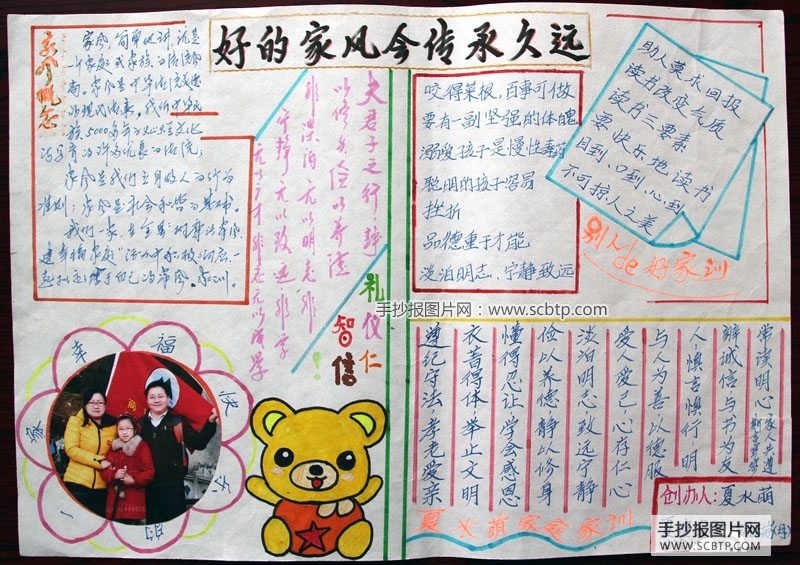 好的家风会传承久远
家风概念
家风，简单地讲，就是
一个家庭或家族的传统风
尚。家风是中华传统美德
的现代传承。我们中华民
族5000多年的文明史文化
家风是我们立身做人的行为
准则；家风是社会和谐的基础。
夫君子之行，静
以修身，俭以养德
非淡泊无以明志，非
宁静无以致远，非学
无以广才，非志无以成学
礼仪仁
智信
！
咬得菜根，百事可做
要有一副坚强的体魄
溺爱孩子是慢性毒药
聪明的孩子容易
挫折
品德重于才能
淡泊明志，宁静致远
助人莫求回报
读书改变气质
读书三要素
要快乐地读书
目到、口到、心到
不可掠人之美
别人de好家训
手抄报图片网：www.scbtp.com
幸福快乐的一家
常读明心
辨诚信与书为友
人，慎言慎行明
与人为善以德服
爱人爱己，心存仁心
淡泊明志，致远宁静
俭以养德，静以修身
懂得忍让，学会感恩
衣着得体，举止文明
遵纪守法，孝老爱亲
创办人：夏水萌
手抄报图片网
WWW.SCBTP.COM